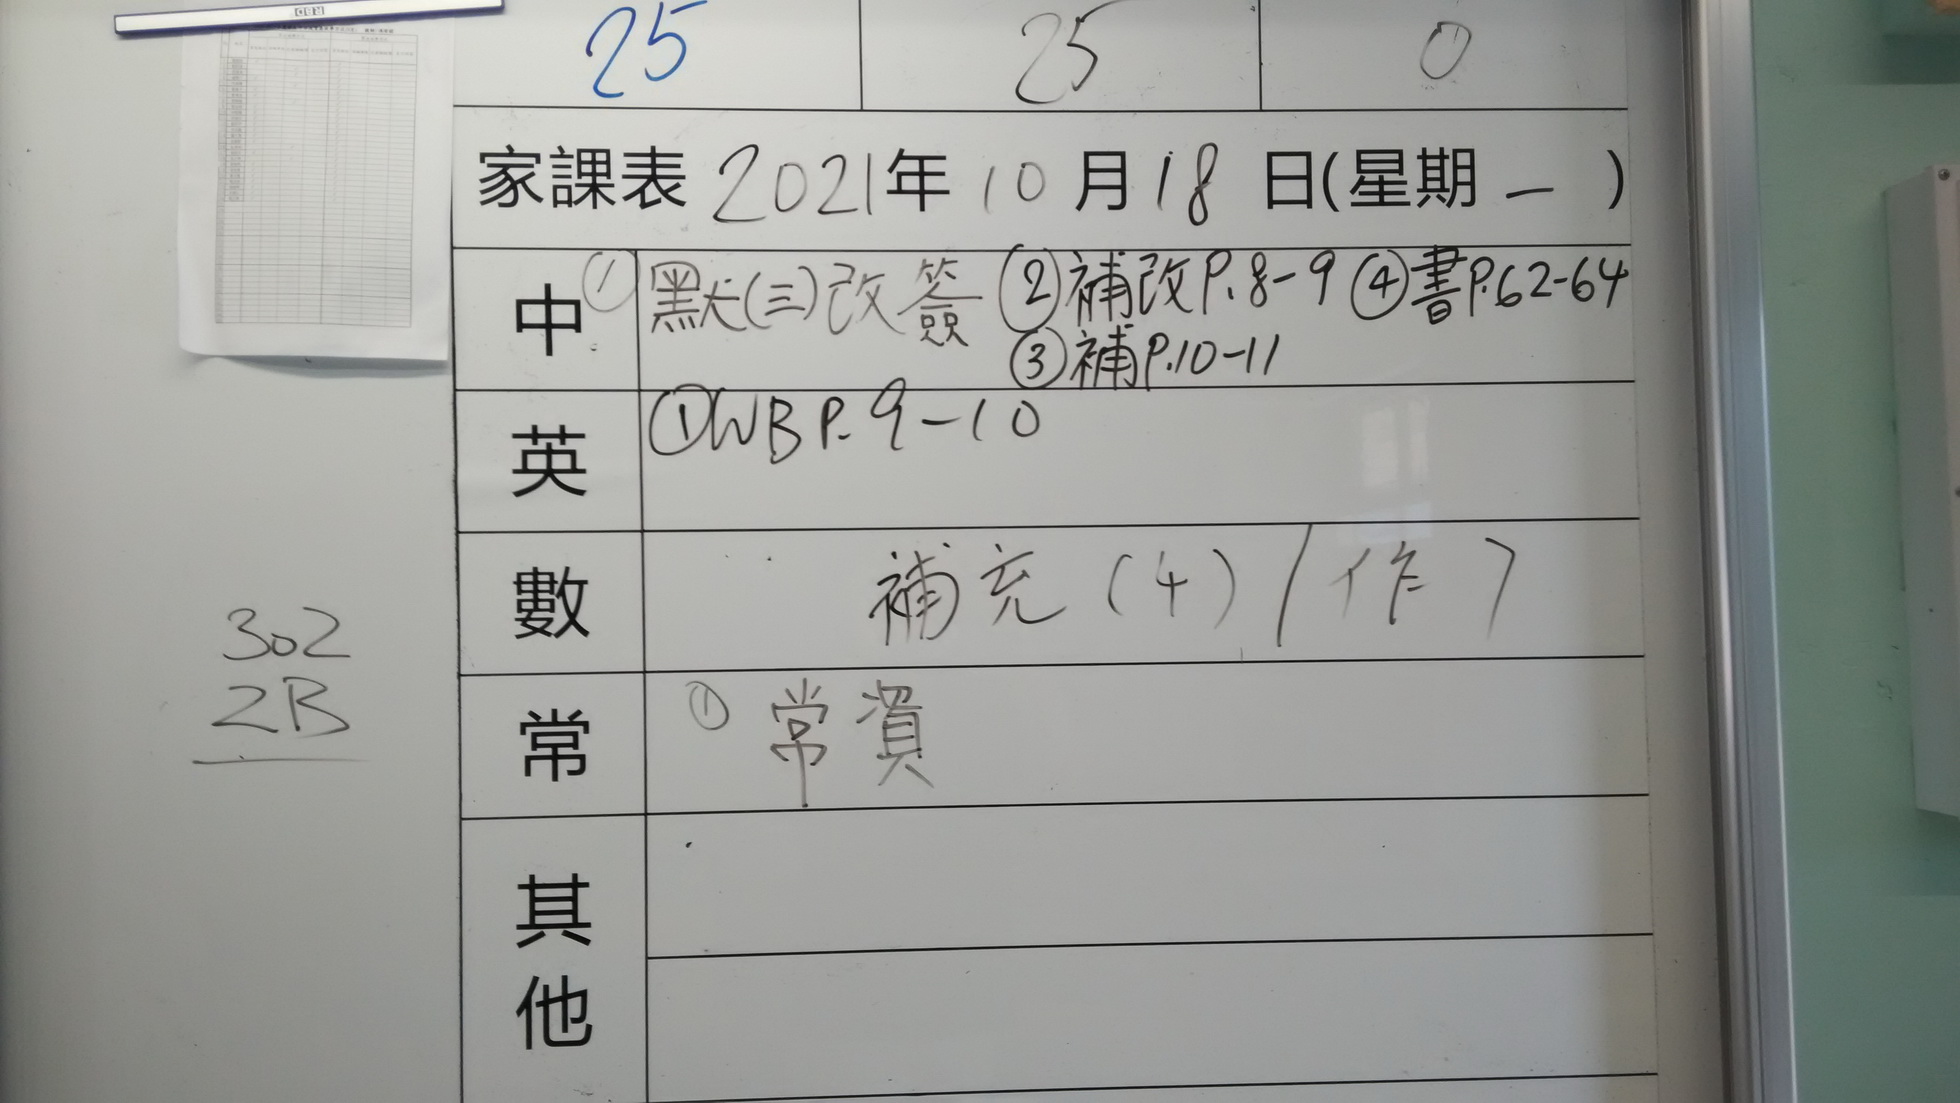 25 25 0
家課表 2021年 10 月 18 日(星期 一 )
中 ① 默(三)改簽 ②補改P.8-9 ④書P.62-64
③補P.10-11
英 ①WB P. 9-10
數 補充 (4) / 作 7
302
2B
常 ① 常資
其
他